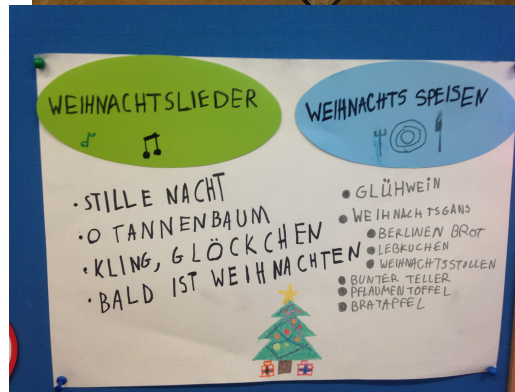 WEIHNACHTSLIEDER
STILLE NACHT
O TANNENBAUM
KLING, GLÖCKCHEN
BALD IST WEIHNACHTEN
WEIHNACHTS SPEISEN
GLÜHWEIN
WEIHNACHTSGANS
BERLINEN BROT
LEBKUCHEN
WEIHNACHTSSTOLLEN
BUNTER TELLER
PFLAUMENTOFFEL
BRATAPFEL